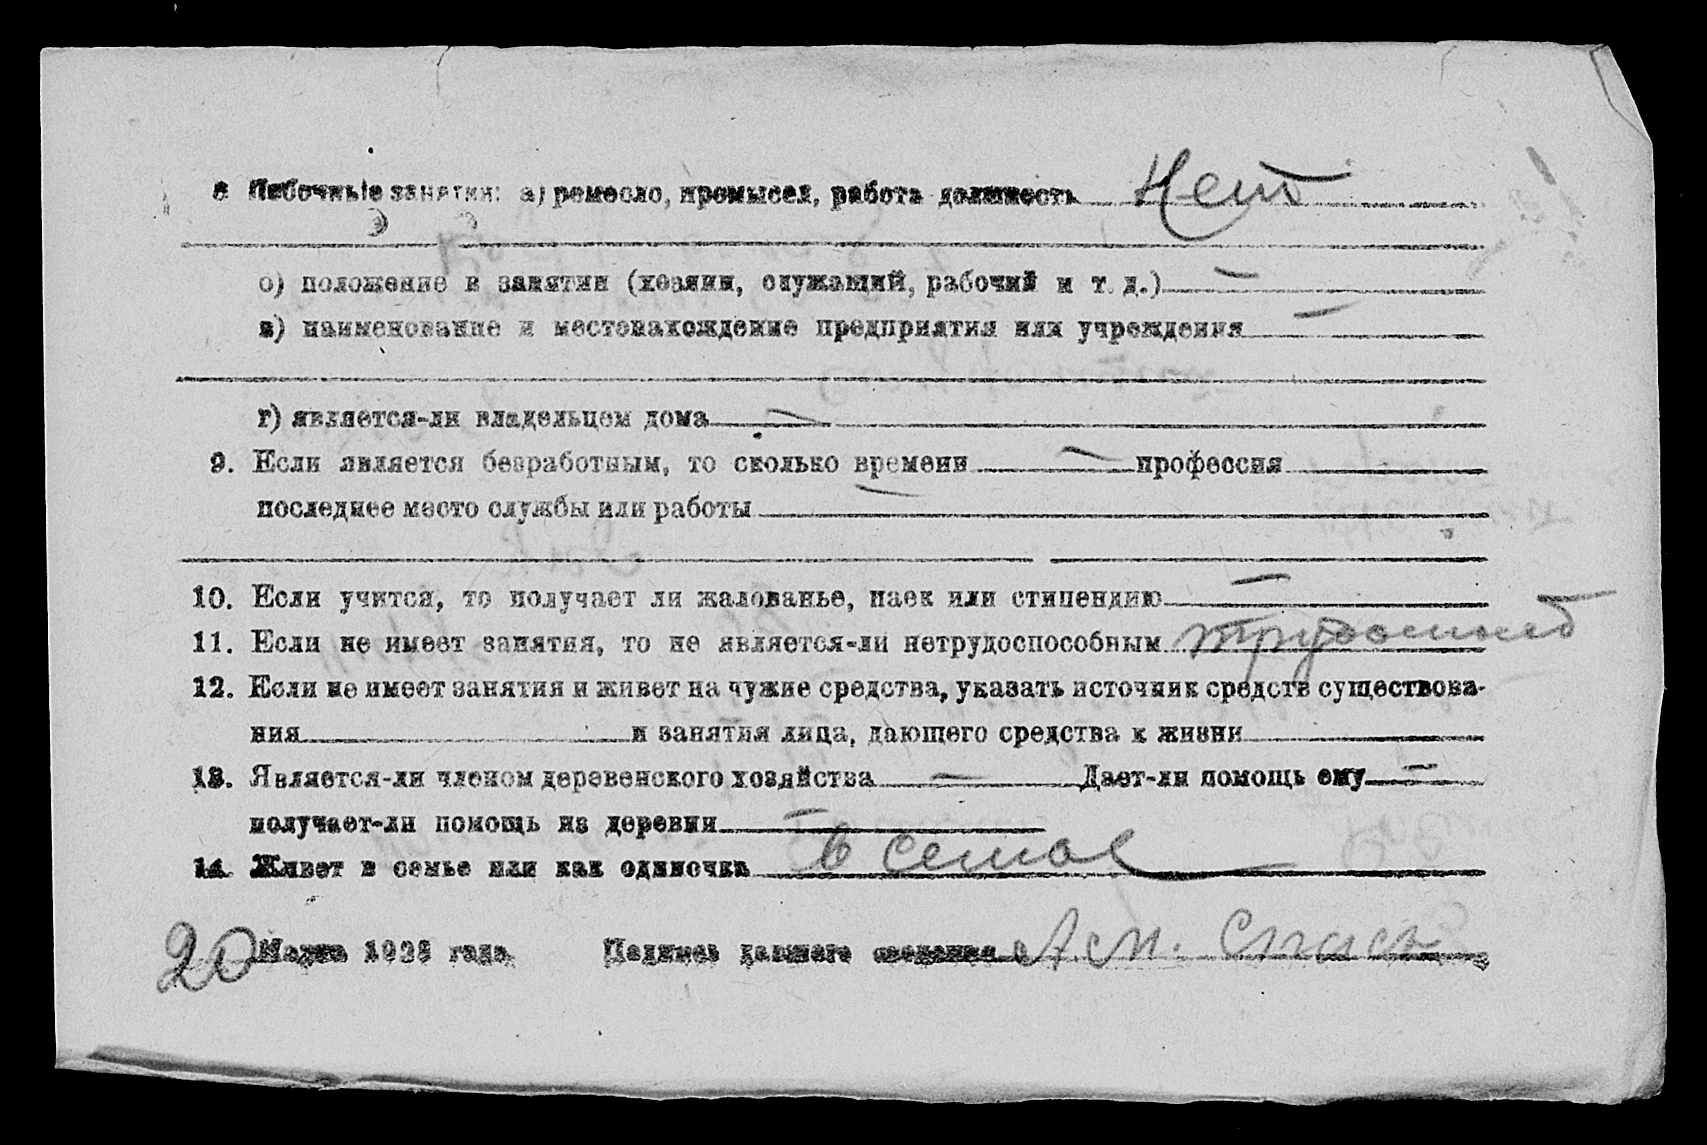 8 Побочные занятия: а) ремесло, промысел, работа должность Нет
о) положение в занятии (хозяин, служащий, рабочий и т. д.) —
в) наименование и местонахождение предприятия или учреждения —
г) является-ли владельцем дома —
9. Если является безработным, то сколько времени — профессия
последнее место службы или работы —
10. Если учится, то получает ли жалованье, паек или стипендию —
11. Если не имеет занятия, то не является-ли нетрудоспособным
12. Если не имеет занятия и живет на чужие средства, указать источник средств существова-
ния и занятия лица, дающего средства к жизни
13. Является-ли членом деревенского хозяйства — Дает-ли помощь ему —
получает-ли помощь из деревни —
14. Живет в семье или как одиночка в семье
20 Марта 1923 года Подпись давшего сведения